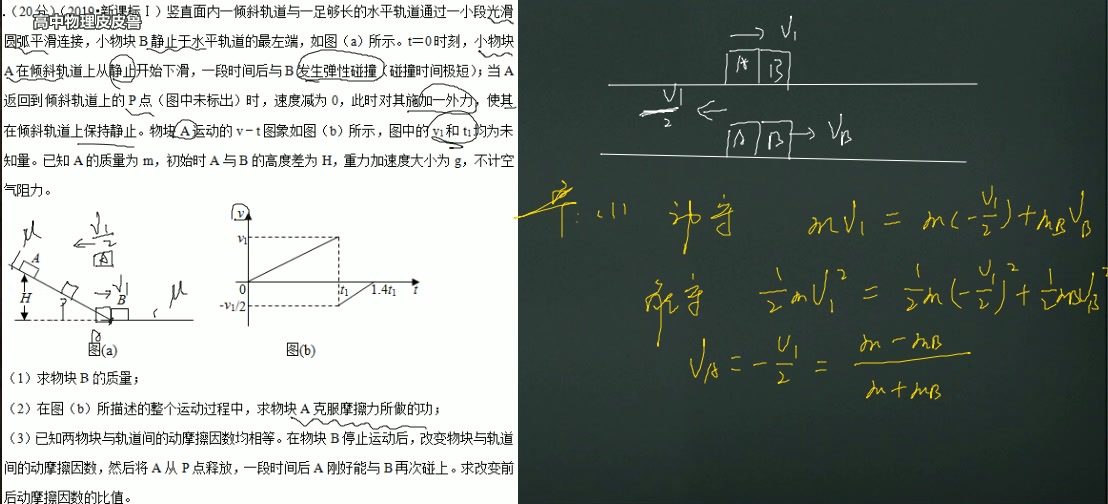 .(20分)(2019•新课标Ⅰ)竖直面内一倾斜轨道与一足够长的水平轨道通过一小段光滑
高中物理皮皮鲁
圆弧平滑连接，小物块B静止于水平轨道的最左端，如图(a)所示。t=0时刻，小物块
A在倾斜轨道上从静止开始下滑，一段时间后与B发生弹性碰撞(碰撞时间极短)；当A
返回到倾斜轨道上的P点(图中未标出)时，速度减为0，此时对其施加一外力，使其
在倾斜轨道上保持静止。物块A运动的v-t图象如图(b)所示，图中的v₁和t₁均为未
知量。已知A的质量为m，初始时A与B的高度差为H，重力加速度大小为g，不计空
气阻力。
μ A H P
v₁/2 A
v₁ B μ
图(a)
v
v₁
0 t₁ 1.4t₁ t
-v₁/2
图(b)
(1)求物块B的质量；
(2)在图(b)所描述的整个运动过程中，求物块A克服摩擦力所做的功；
(3)已知两物块与轨道间的动摩擦因数均相等。在物块B停止运动后，改变物块与轨道
间的动摩擦因数，然后将A从P点释放，一段时间后A刚好能与B再次碰上。求改变前
后动摩擦因数的比值。
→ V₁
A B
V₁/2 ←
A B → V_B
(1) 动守 mV₁ = m(-V₁/2)+m_B V_B
能守 1/2 mV₁² = 1/2 m(-V₁/2)² + 1/2 m_B V_B²
V_A = -V₁/2 = (m-m_B)/(m+m_B)